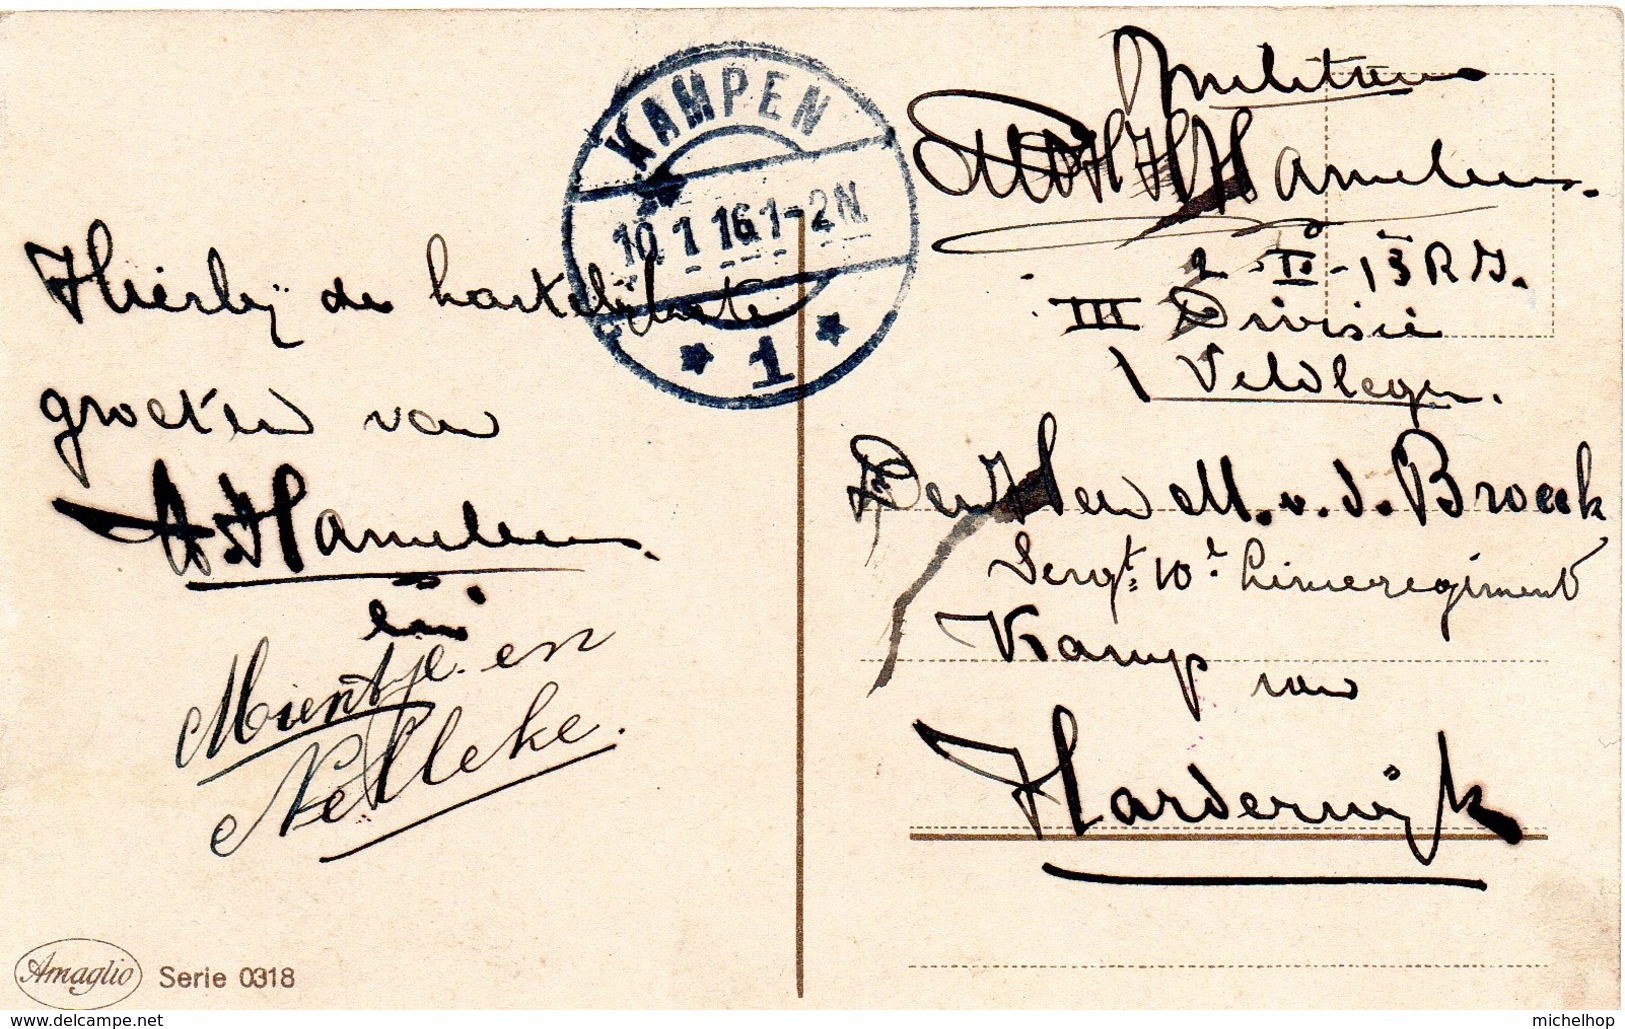 KAMPEN
10 1 16 1-2N
1
Hierbij de hartelijkste
groeten van
A. Hamelen.
en
Mientje en
Nelleke.
Militair
Hamelen.
2 II - 13 R I.
III Divisie
Veldleger.
Den Heer M. v. d. Broeck
Sergt 10e Linieregiment
Kamp van
Harderwijk
Amaglio Serie 0318
www.delcampe.net michelhop